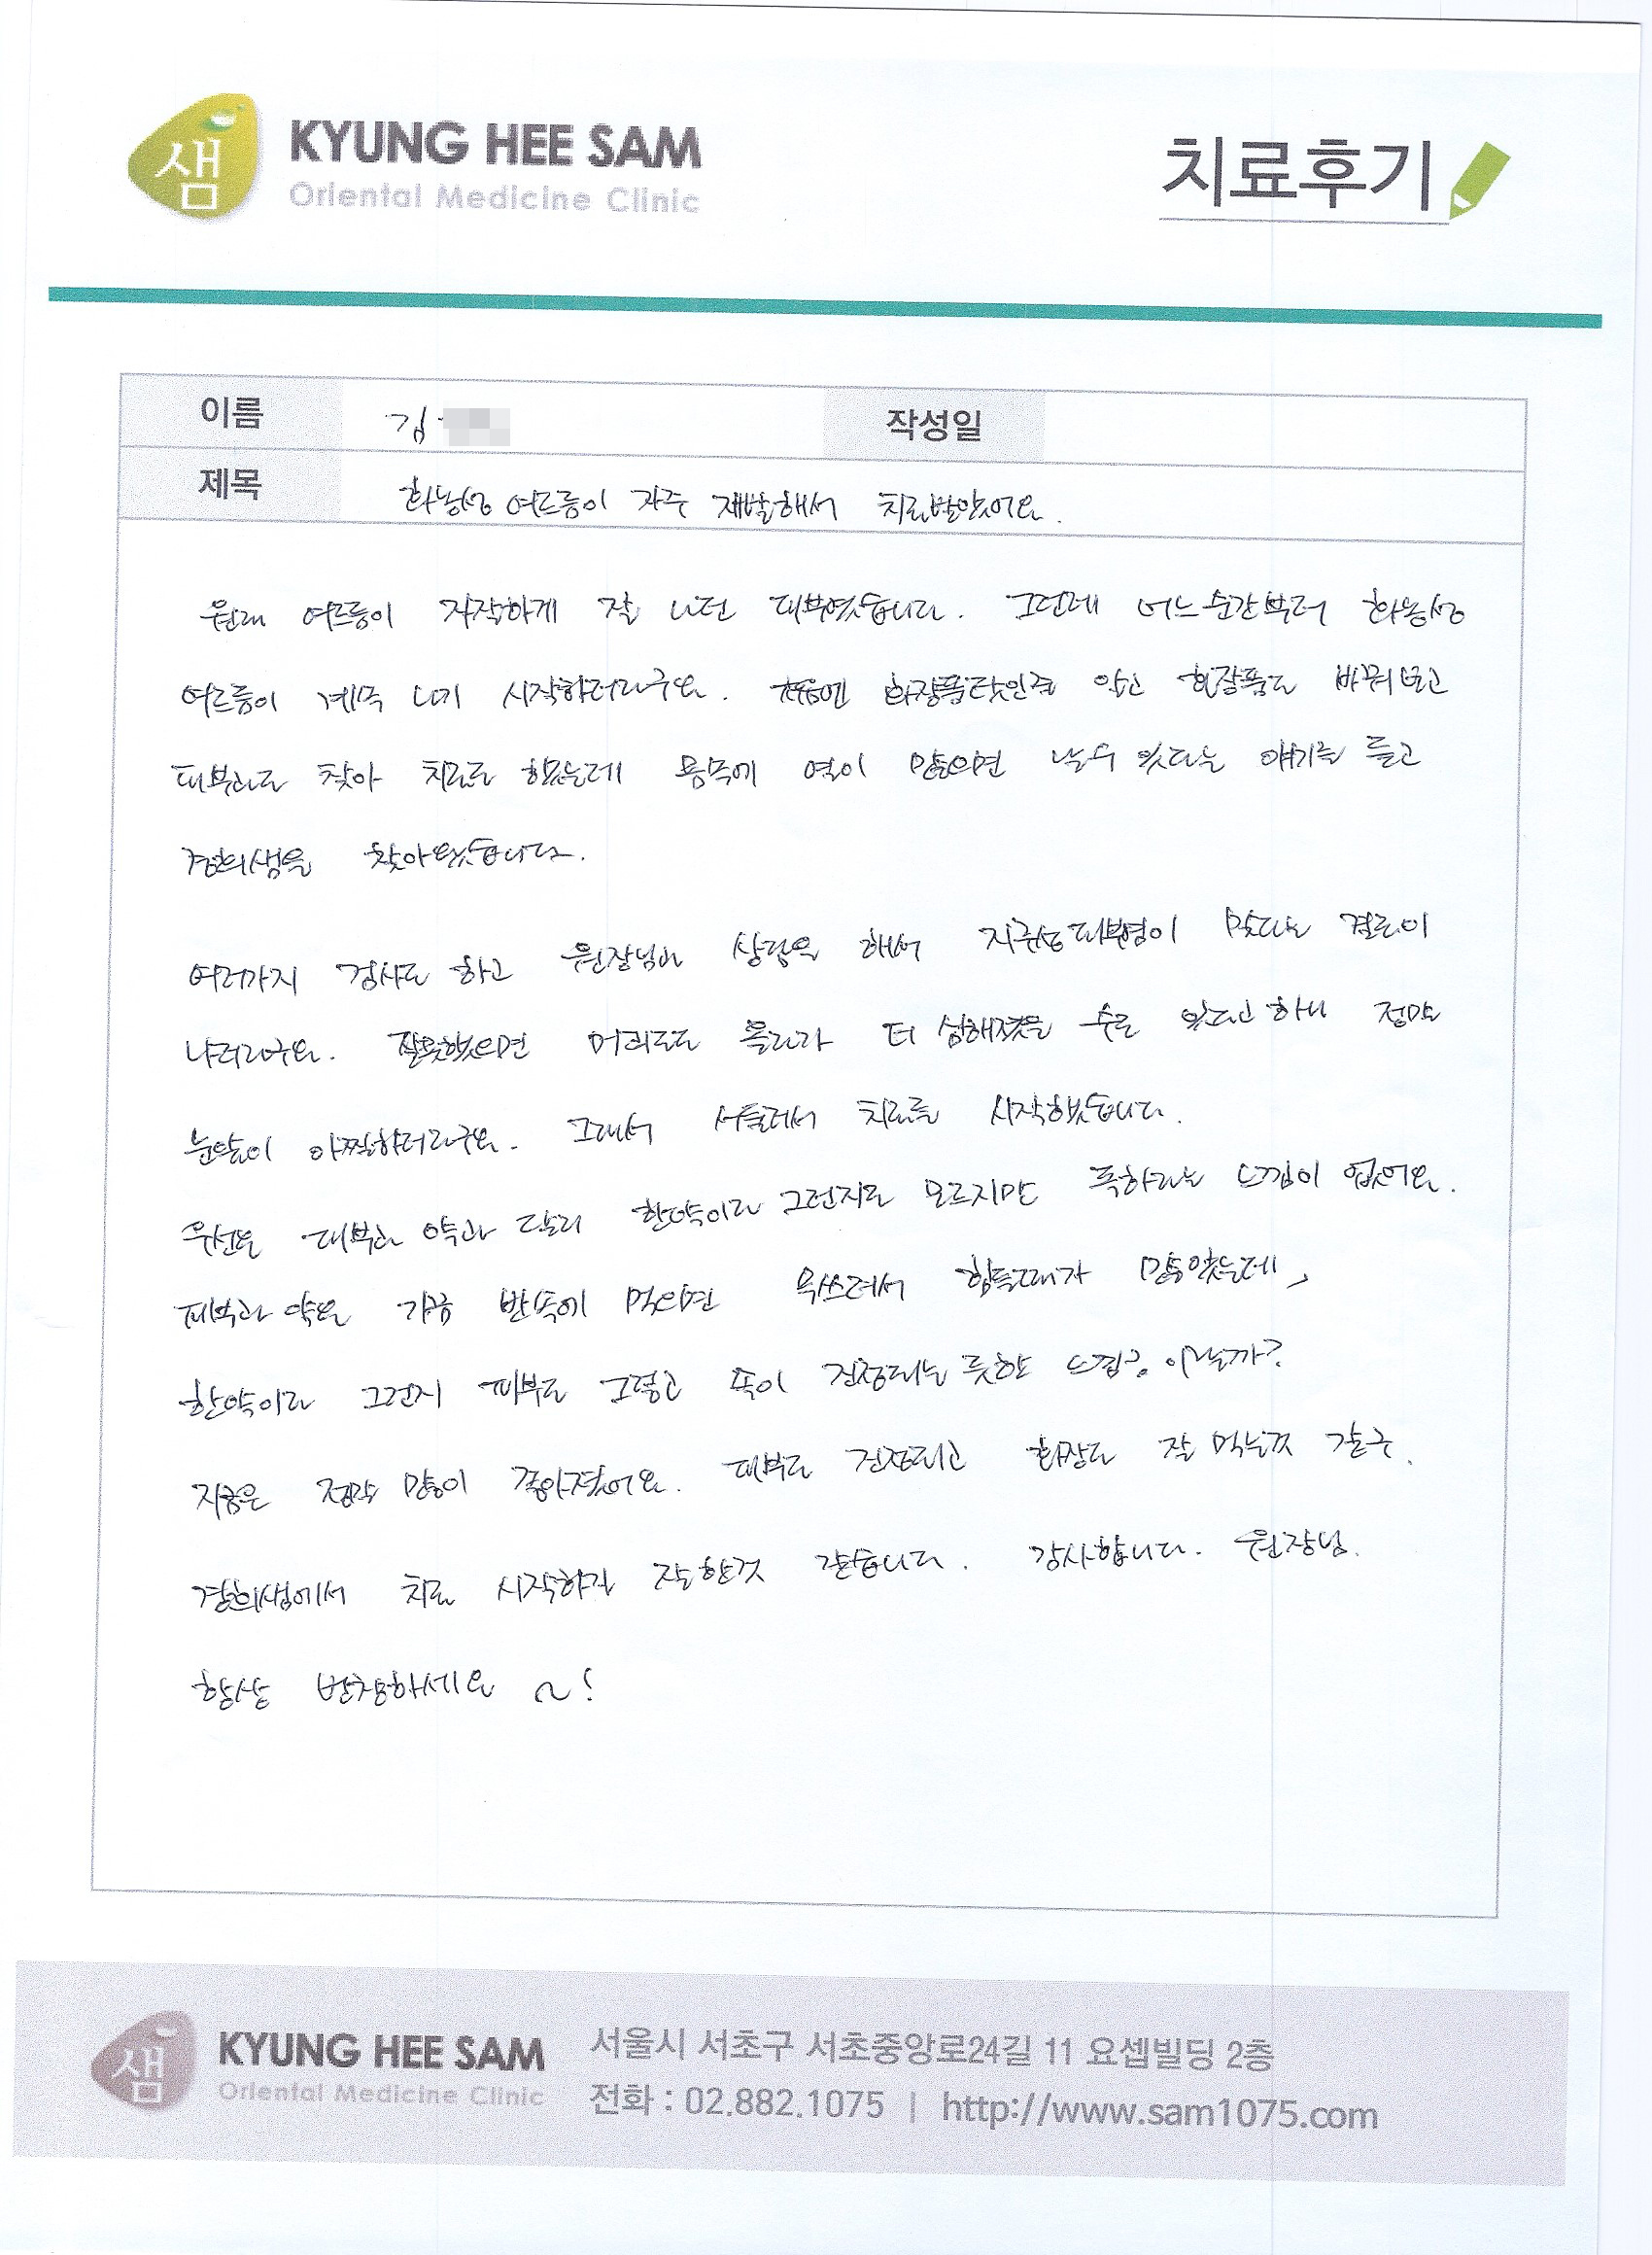 샘
KYUNG HEE SAM
Oriental Medicine Clinic
치료후기
이름 김 작성일
제목 화농성 여드름이 자주 재발해서 치료받았어요.
원래 여드름이 자잘하게 잘 나던 피부였습니다. 그런데 어느순간부터 화농성
여드름이 계속 나기 시작하더라구요. 처음엔 화장품탓인줄 알고 화장품도 바꿔보고
피부과도 찾아 치료도 했었는데 몸속에 열이 많으면 날수 있다는 얘기를 듣고
경희샘을 찾아왔습니다.
여러가지 검사도 하고 원장님과 상담을 해보니 지루성피부염이 맞다는 결론이
나더라구요. 잘못했으면 머리로도 올라가 더 심해졌을 수도 있다고 하니 정말
눈앞이 아찔하더라구요. 그래서 서둘러서 치료를 시작했습니다.
우선은 피부과 약과 달리 한약이라 그런지도 모르지만 독하다는 느낌이 없었어요.
피부과 약은 가끔 빈속에 먹으면 속쓰려서 힘들때가 많았는데,
한약이라 그런지 피부도 그렇고 속이 진정되는 듯한 느낌? 이랄까?
지금은 정말 많이 좋아졌어요. 피부도 진정되고 화장도 잘 먹는것 같구.
경희샘에서 치료 시작하길 잘한것 같습니다. 감사합니다. 원장님.
항상 번창하세요 ~!
샘
KYUNG HEE SAM
Oriental Medicine Clinic
서울시 서초구 서초중앙로24길 11 요셉빌딩 2층
전화 : 02.882.1075 | http://www.sam1075.com